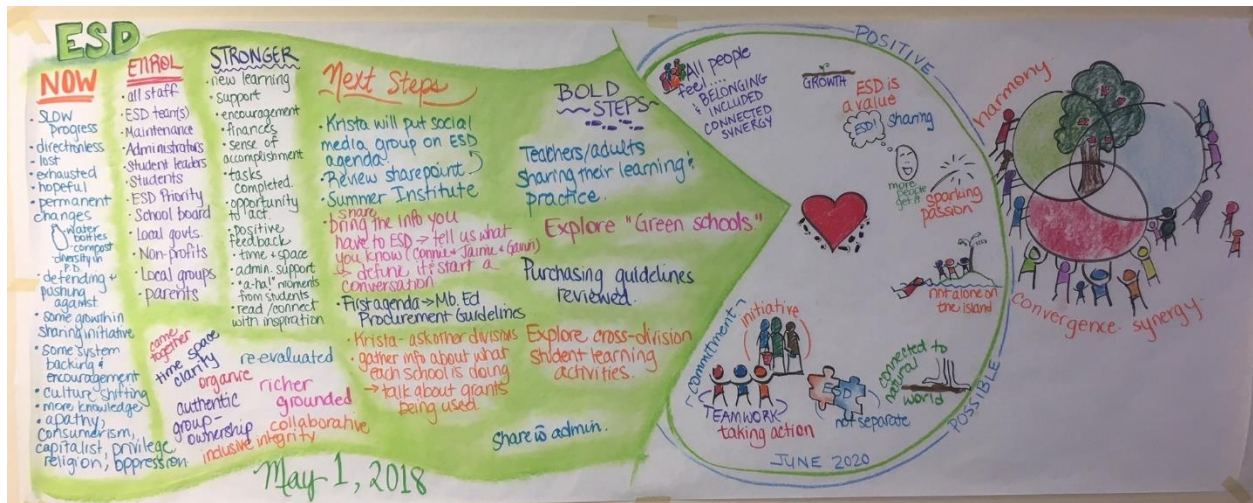 ESD
NOW
• SLOW
progress
• directionless
• lost
• exhausted
• hopeful
• permanent
changes
water
bottles
-compost
diversity in
P.D.
• defending +
pushing
against
• some growth in
sharing initiative
• some system
backing &
encouragement
• culture shifting
• more knowledge
• apathy,
consumerism,
capitalist, privilege,
religion, oppression
ENROL
• all staff
• ESD team(s)
• Maintenance
• Administrators
• Student leaders
• Students
• ESD Priority
• School board
• Local govts.
• Non-profits
• Local groups
• parents
STRONGER
• new learning
• support
• encouragement
• finances
• sense of
accomplishment
• tasks
completed.
• opportunity
to act.
• positive
feedback
• time + space
• admin. support
• "a-ha!" moments
from students
• read/connect
with inspiration
came
together
time space
clarity
organic
authentic
group-
ownership
inclusive integrity
re-evaluated
richer
grounded
collaborative
May 1, 2018
Next Steps
• Krista will put social
media group on ESD
agenda.
• Review sharepoint
• Summer Institute
share
• bring the info you
have to ESD → tell us what
you know (Connie + Jaimie +
→ define it; start a
conversation.
• First agenda → Mb. Ed
Procurement Guidelines
• Krista - ask other divisions
• gather info about what
each school is doing
→ talk about grants
being used.
BOLD
STEPS
Teachers/adults
sharing their learning &
practice.
Explore "Green schools."
Purchasing guidelines
reviewed.
Explore cross-division
student learning
activities.
share w admin.
POSITIVE
POSSIBLE
JUNE 2020
All people
feel....
BELONGING
INCLUDED
CONNECTED
SYNERGY
GROWTH
ESD is
a value
ESD!
sharing
more
people
get it
sparking
passion
not alone on
the island
connected to
natural
world
commitment
initiative
TEAMWORK
taking action
SD
not separate
harmony.
convergence. synergy.